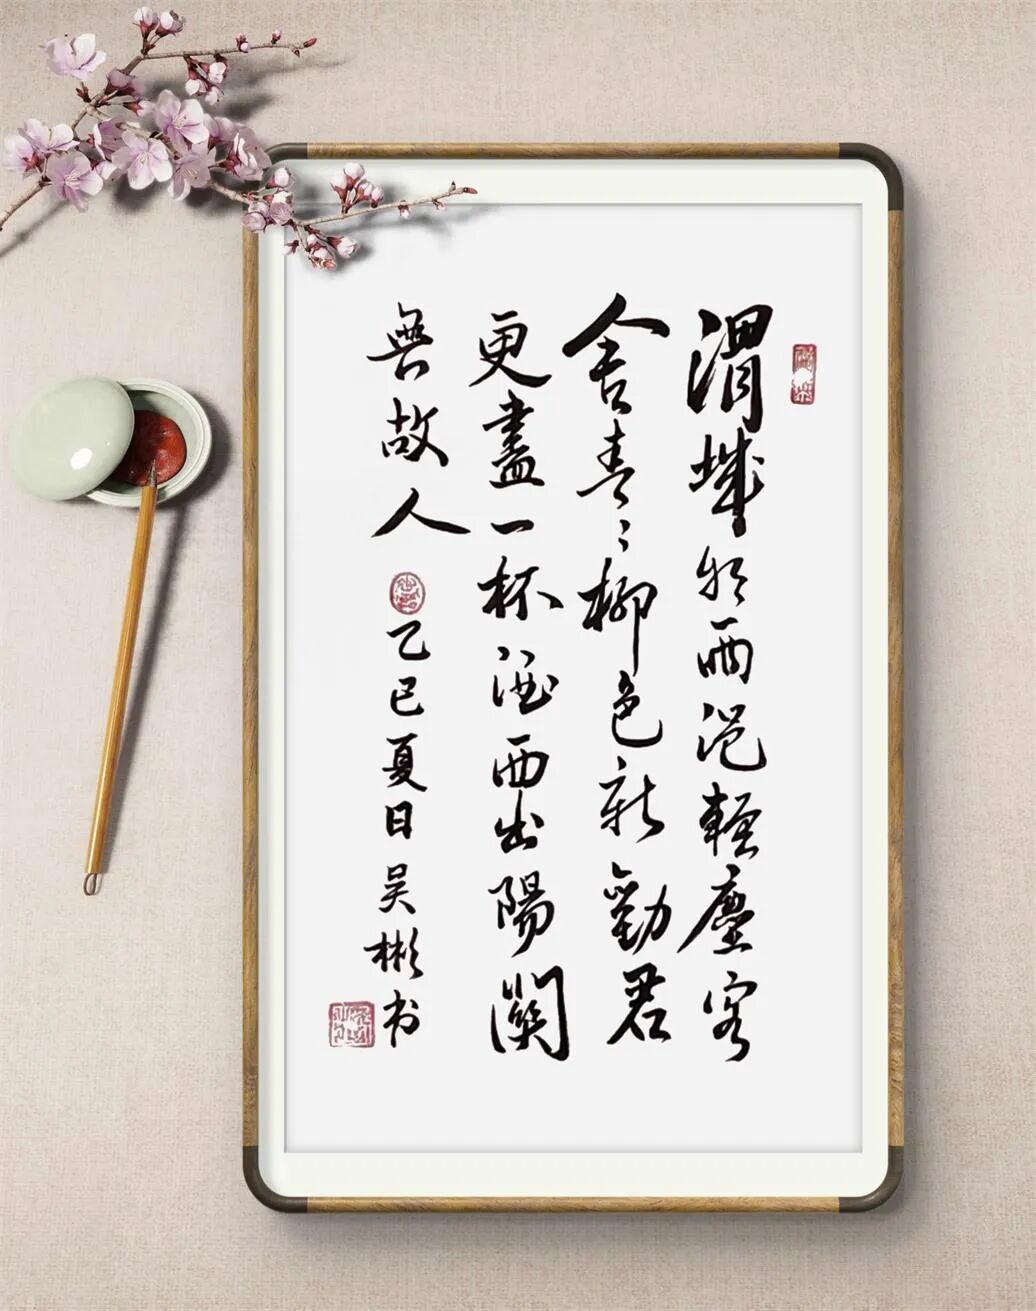 渭城朝雨浥輕塵客
舍青〻柳色新勸君
更盡一杯酒西出陽關
無故人
乙巳夏日吴彬书